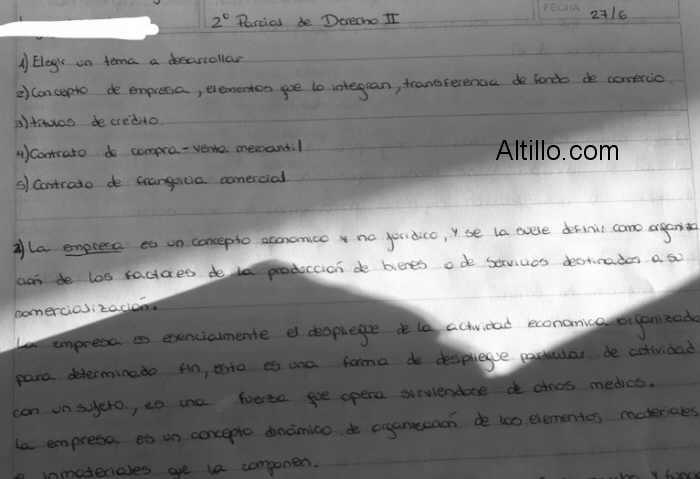 2º Parcial de Derecho II
FECHA 27/6
1) Elegir un tema a desarrollar
2) Concepto de empresa, elementos que lo integran, transferencia de fondo de comercio.
3) titulos de credito
4) Contrato de compra-venta mercantil
Altillo.com
5) Contrato de franquicia comercial
2) La empresa es un concepto economico y no juridico, y se la suele definir como organiza
ción de los factores de la producción de bienes o de servicios destinados a su
comercialización.
La empresa es esencialmente el despliegue de la actividad economica organizada
para determinado fin, esta es una forma de despliegue particular de actividad
con un sujeto, es una fuerza que opera sirviendose de otros medios.
La empresa es un concepto dinámico de organización de los elementos materiales
e inmateriales que la componen.